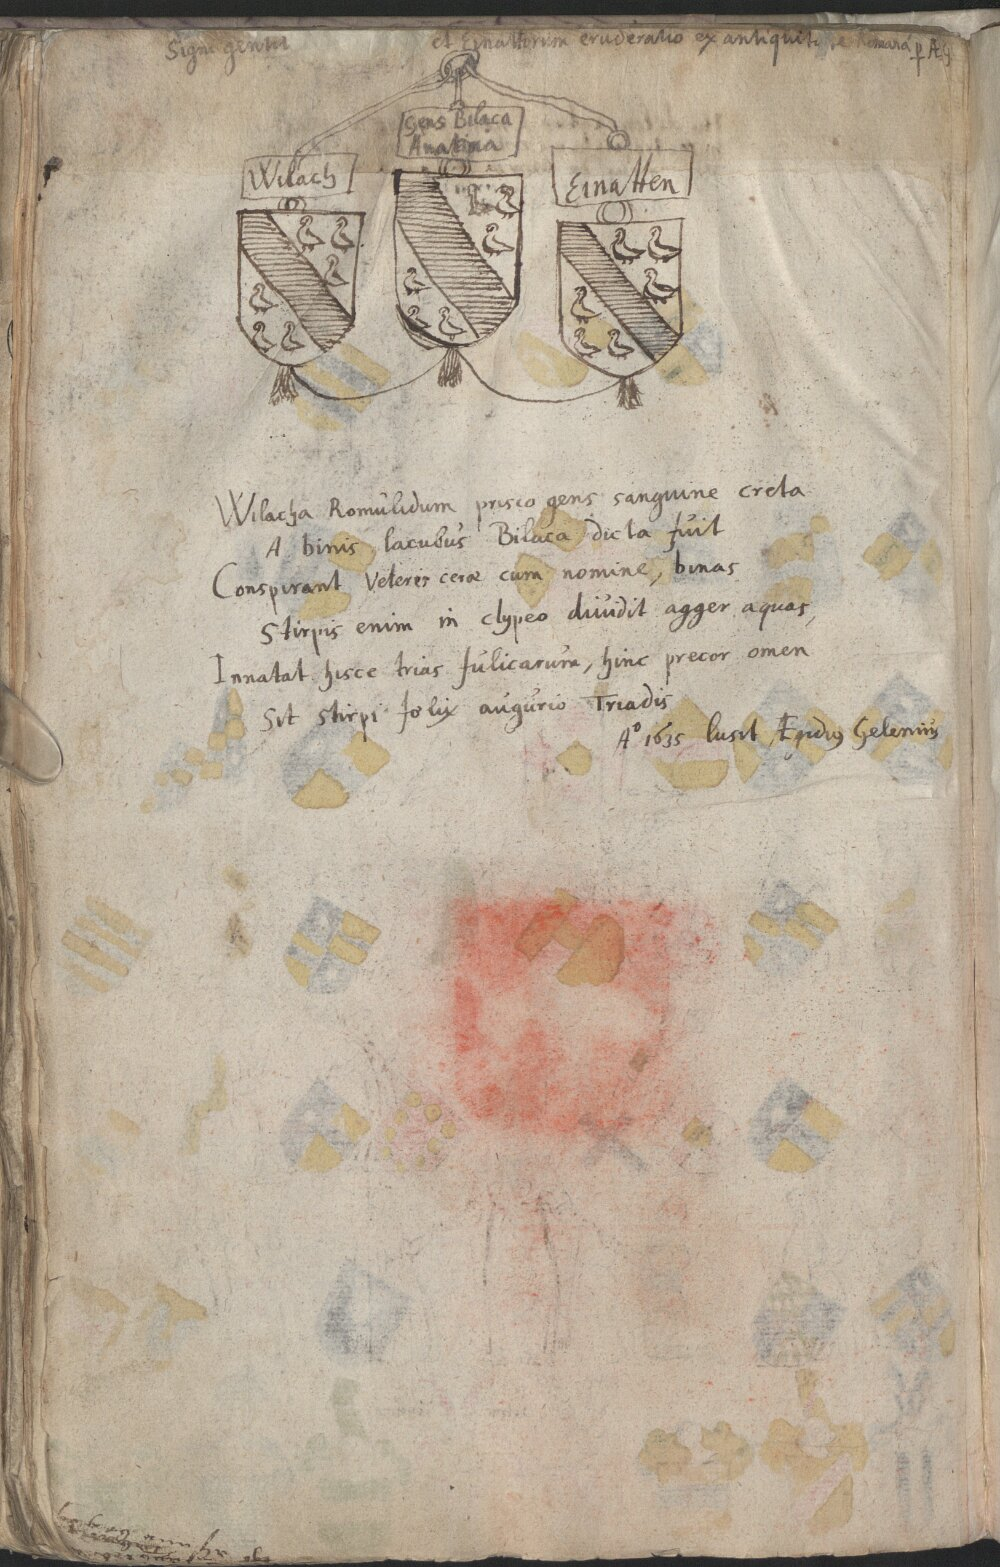 Signi gentit et Einattorum eruderatio ex antiquit Romana p Æg
Gens Bilaca
Anatina
Wilach
Einatten
Wilacha Romulidum prisco gens sanguine creta
A binis lacubus Bilaca dicta fuit
Conspirant Veteris ceræ cum nomine, binas
Stirpis enim in clypeo dividit agger aquas,
Innatat hisce trias fulicarum, hinc precor omen
Sit stirpi fœlix augurio Triadis
Aº 1635 lusit Ægidių Gelenius